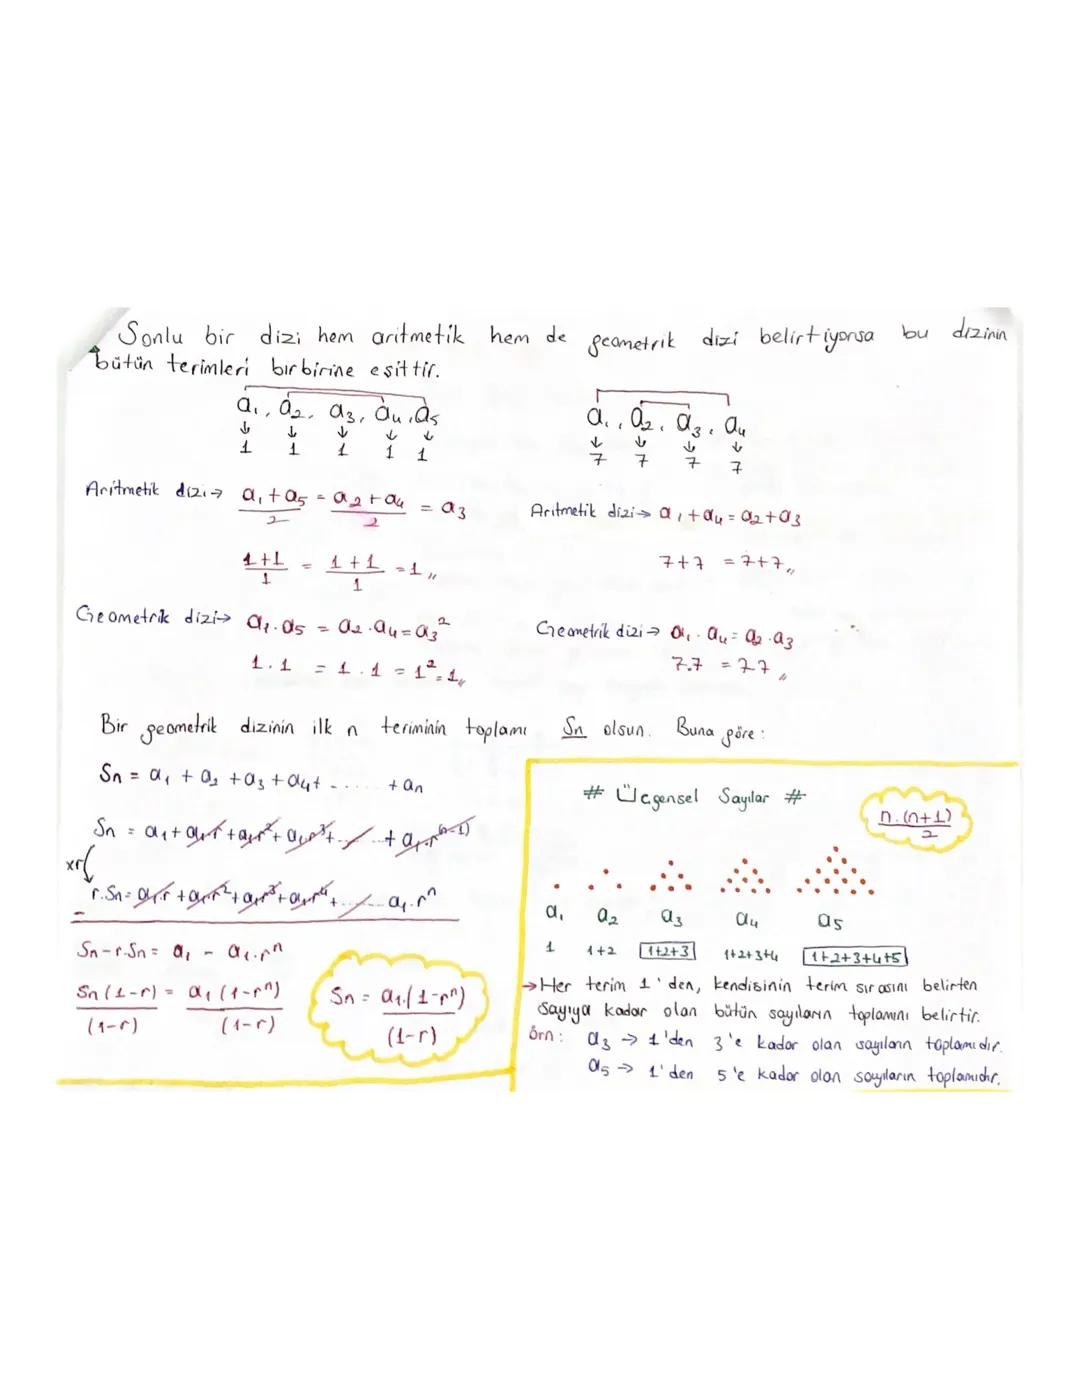 Sonlu bir dizi hem aritmetik hem de geometrik dizi belirtiyorsa bu dizinin
bütün terimleri birbirine eşittir.
a₁, a₂, a₃, a₄, a₅
↓ ↓ ↓ ↓ ↓
1 1 1 1 1
Aritmetik dizi→ (a₁+a₅)/2 = (a₂+a₄)/2 = a₃
(1+1)/1 = (1+1)/1 = 1 //
Geometrik dizi→ a₁.a₅ = a₂.a₄ = a₃²
1.1 = 1.1 = 1² = 1 //
a₁, a₂, a₃, a₄
↓ ↓ ↓ ↓
7 7 7 7
Aritmetik dizi→ a₁+a₄ = a₂+a₃
7+7 = 7+7 //
Geometrik dizi→ a₁.a₄ = a₂.a₃
7.7 = 7.7 //
Bir geometrik dizinin ilk n teriminin toplamı Sn olsun. Buna göre:
Sn = a₁ + a₂ + a₃ + a₄ + ..... + an
Sn = a₁ + a₁.r + a₁r² + a₁.r³ + ..... + a₁.r^(n-1)
xr
r.Sn = a₁.r + a₁.r² + a₁r³ + a₁r⁴ + ........ a₁.rⁿ
-
Sn - r.Sn = a₁ - a₁.rⁿ
Sn(1-r)/(1-r) = a₁(1-rⁿ)/(1-r)
Sn = a₁.(1-rⁿ)/(1-r)
# Üçgensel Sayılar #
n.(n+1)/2
a₁ a₂ a₃ a₄ a₅
1 1+2 1+2+3 1+2+3+4 1+2+3+4+5
→Her terim 1'den, kendisinin terim sırasını belirten
sayıya kadar olan bütün sayıların toplamını belirtir.
örn: a₃ → 1'den 3'e kadar olan sayıların toplamıdır.
a₅ → 1'den 5'e kadar olan sayıların toplamıdır.